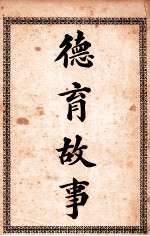 德育故事